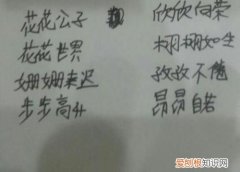 花花公子
花花世界
姗姗来迟
步步高升
欣欣向荣
栩栩如生
孜孜不倦
昂昂自若
爱刨根知识网